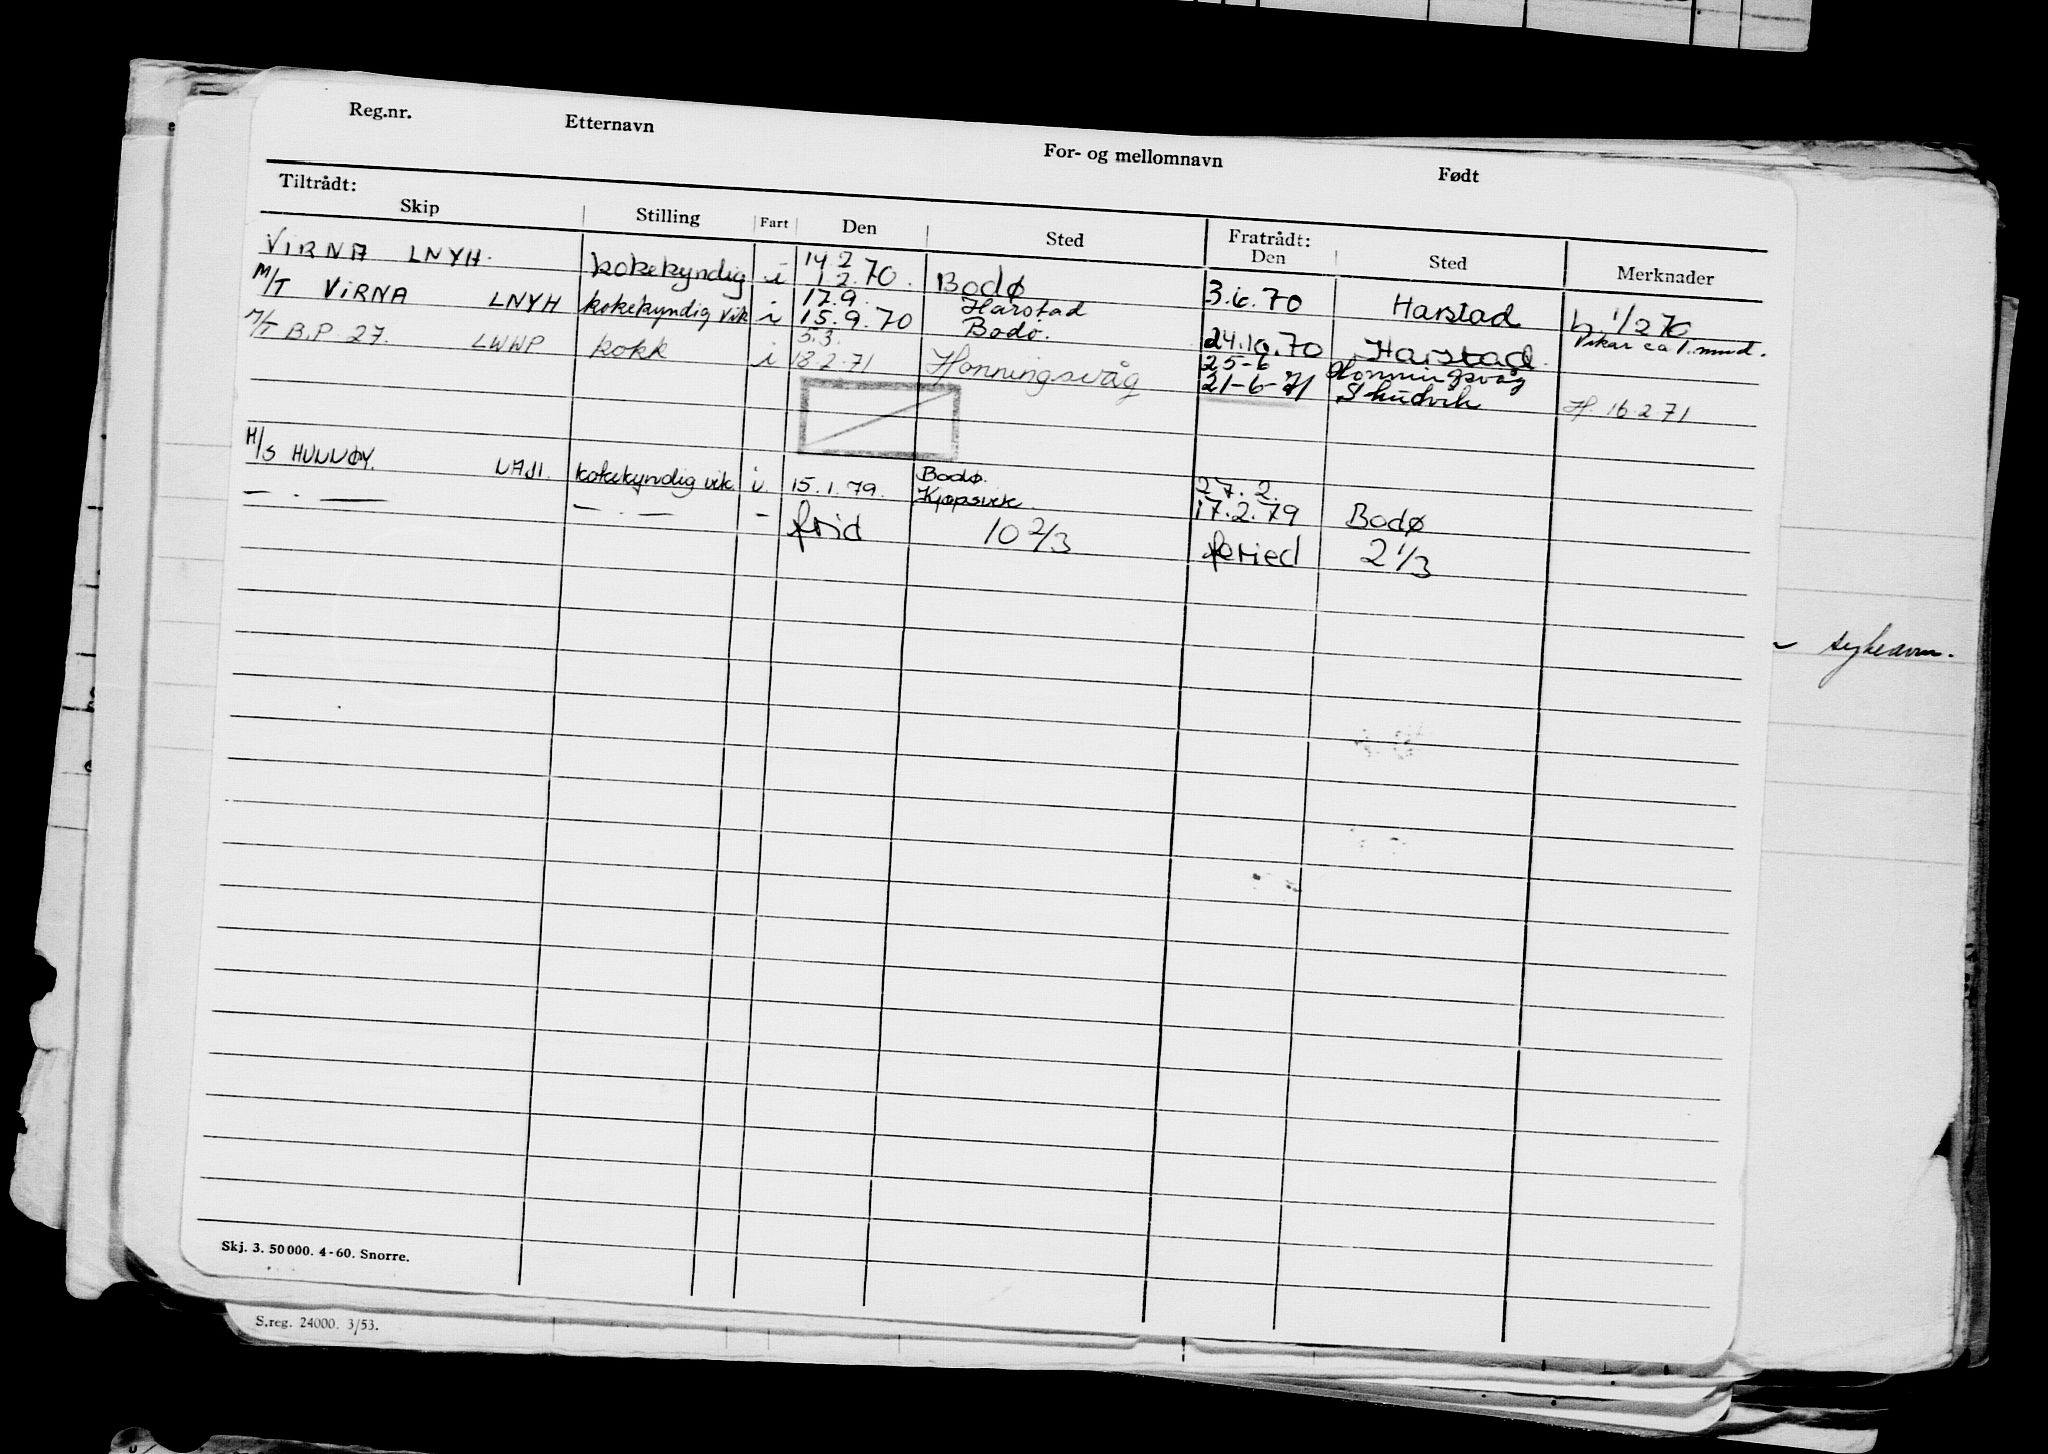 Reg.nr. Etternavn For- og mellomnavn Født
Tiltrådt: Fratrådt:
Skip Stilling Fart Den Sted Den Sted Merknader
14 2
VIRNA LNYH. kokekyndig i 1 2.70. Bodø 3.6.70 Harstad h. 1/2 70
17.9. Harstad Vikar ca 1. mnd.
M/T VIRNA LNYH kokekyndig vik i 15.9.70 Bodø. 24.10.70 Harstad.
5.3. 25-6 Honningsvåg
M/T B.P. 27. LWWP kokk i 18.2.71 Honningsvåg 21-6-71 H. 16.2.71
Bodø. 27.2.
M/S HUNNØY. kokekyndig vik. i. 15.1.79. Kjøpsvik. 17.2.79 Bodø
— . — — . — — frid 10 2/3 feried 2 1/3
Skj. 3. 50000. 4-60. Snorre.
S.reg. 24000. 3/53.